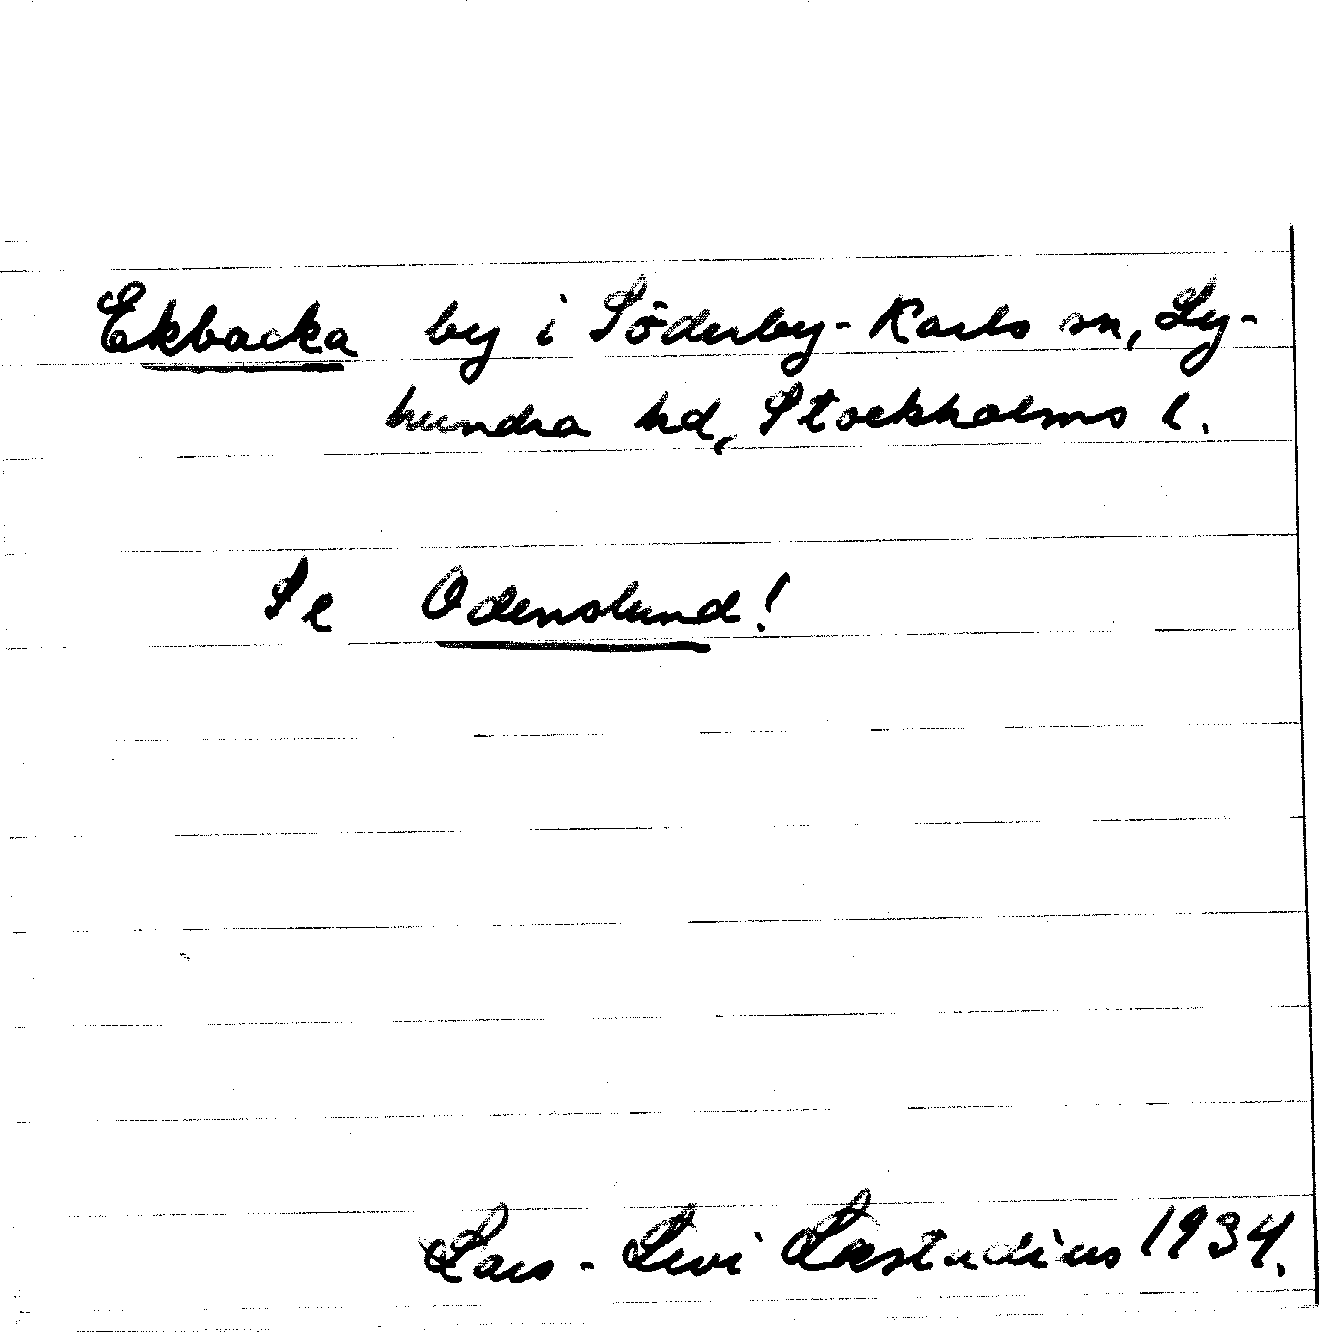 Ekbacka by i Söderby-Karls sn, Ly-
hundra hd, Stockholms l.
Se Odenslund!
Lars-Levi Læstadius 1934.